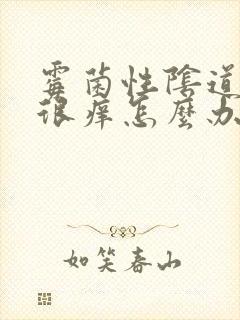 霉菌性陰道
很痒怎麼办
如笑春山